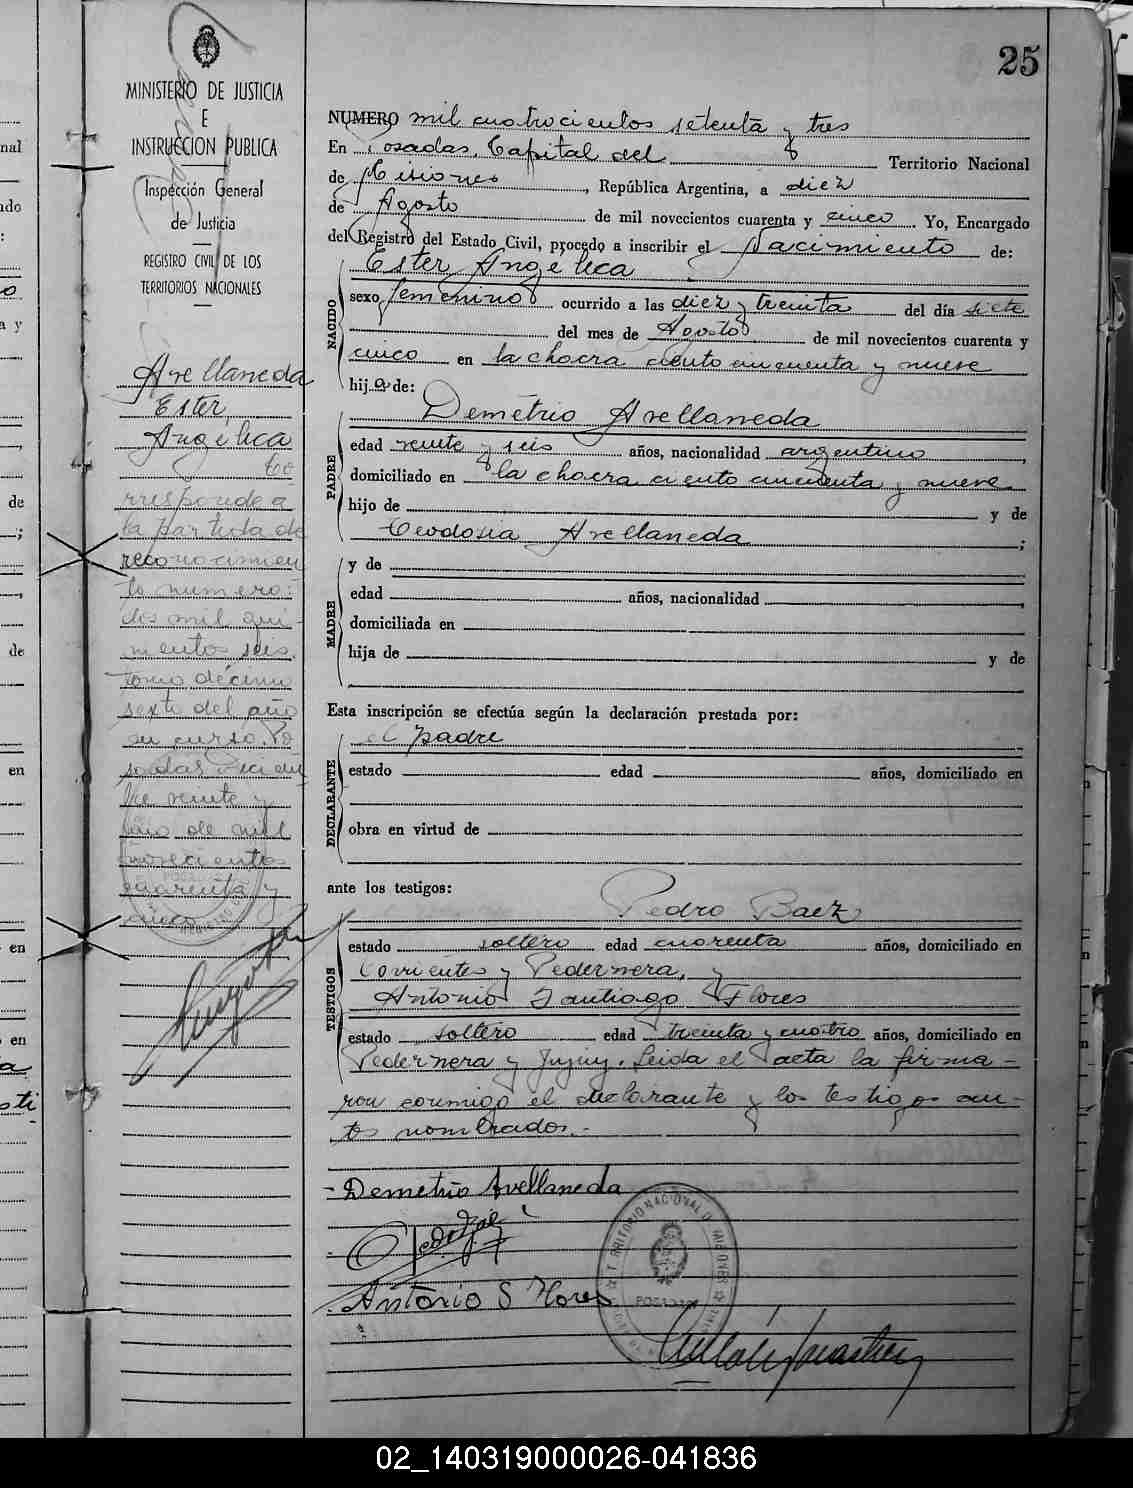 25
MINISTERIO DE JUSTICIA
E
INSTRUCCION PUBLICA
Inspección General
de Justicia
REGISTRO CIVIL DE LOS
TERRITORIOS NACIONALES
Avellaneda
Ester
Angélica
Co
rresponde a
la partida de
reconocimien
to numero:
dos mil qui-
nientos seis.
tomo décimo
sexto del año
en curso. Po
sadas Diciem
bre veinte y
uno de mil
novecientos
cuarenta y
cinco
NUMERO mil cuatrocientos setenta y tres
En Posadas, Capital del Territorio Nacional
de Misiones, República Argentina, a diez
de Agosto de mil novecientos cuarenta y cinco. Yo, Encargado
del Registro del Estado Civil, procedo a inscribir el Nacimiento de:
NACIDO
Ester Angélica
sexo femenino ocurrido a las diez y treinta del día siete
del mes de Agosto de mil novecientos cuarenta y
cinco en la chacra ciento cincuenta y nueve
hij a de:
PADRE
Demétrio Avellaneda
edad veinte y seis años, nacionalidad argentino,
domiciliado en la chacra ciento cincuenta y nueve
hijo de y de
Teodosia Avellaneda;
MADRE
y de
edad años, nacionalidad,
domiciliada en
hija de y de
Esta inscripción se efectúa según la declaración prestada por:
DECLARANTE
el padre
estado edad años, domiciliado en
obra en virtud de
ante los testigos:
TESTIGOS
Pedro Baez
estado soltero edad cuarenta años, domiciliado en
Corrientes y Pedernera, y
Antonio Santiago Flores
estado soltero edad treinta y cuatro años, domiciliado en
Pedernera y Jujuy. Leida el acta la firma-
ron conmigo el declarante y los testigos an-
tes nombrados.-
- Demetrio Avellaneda
Antonio S Flores
POSADAS
02_140319000026-041836